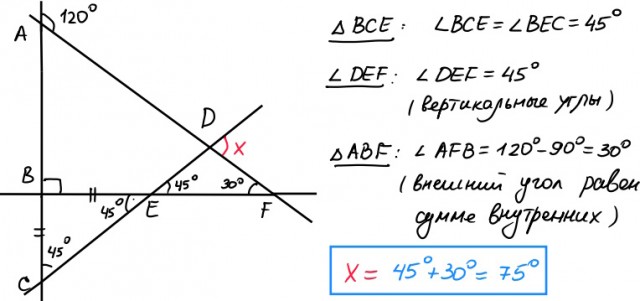 A
120°
B
C
D
x
E
F
45°
45°
45°
30°
△ BCE: ∠BCE = ∠BEC = 45°
∠ DEF: ∠ DEF = 45°
(вертикальные углы)
△ABF: ∠ AFB = 120° - 90° = 30°
(внешний угол равен
сумме внутренних)
X = 45° + 30° = 75°